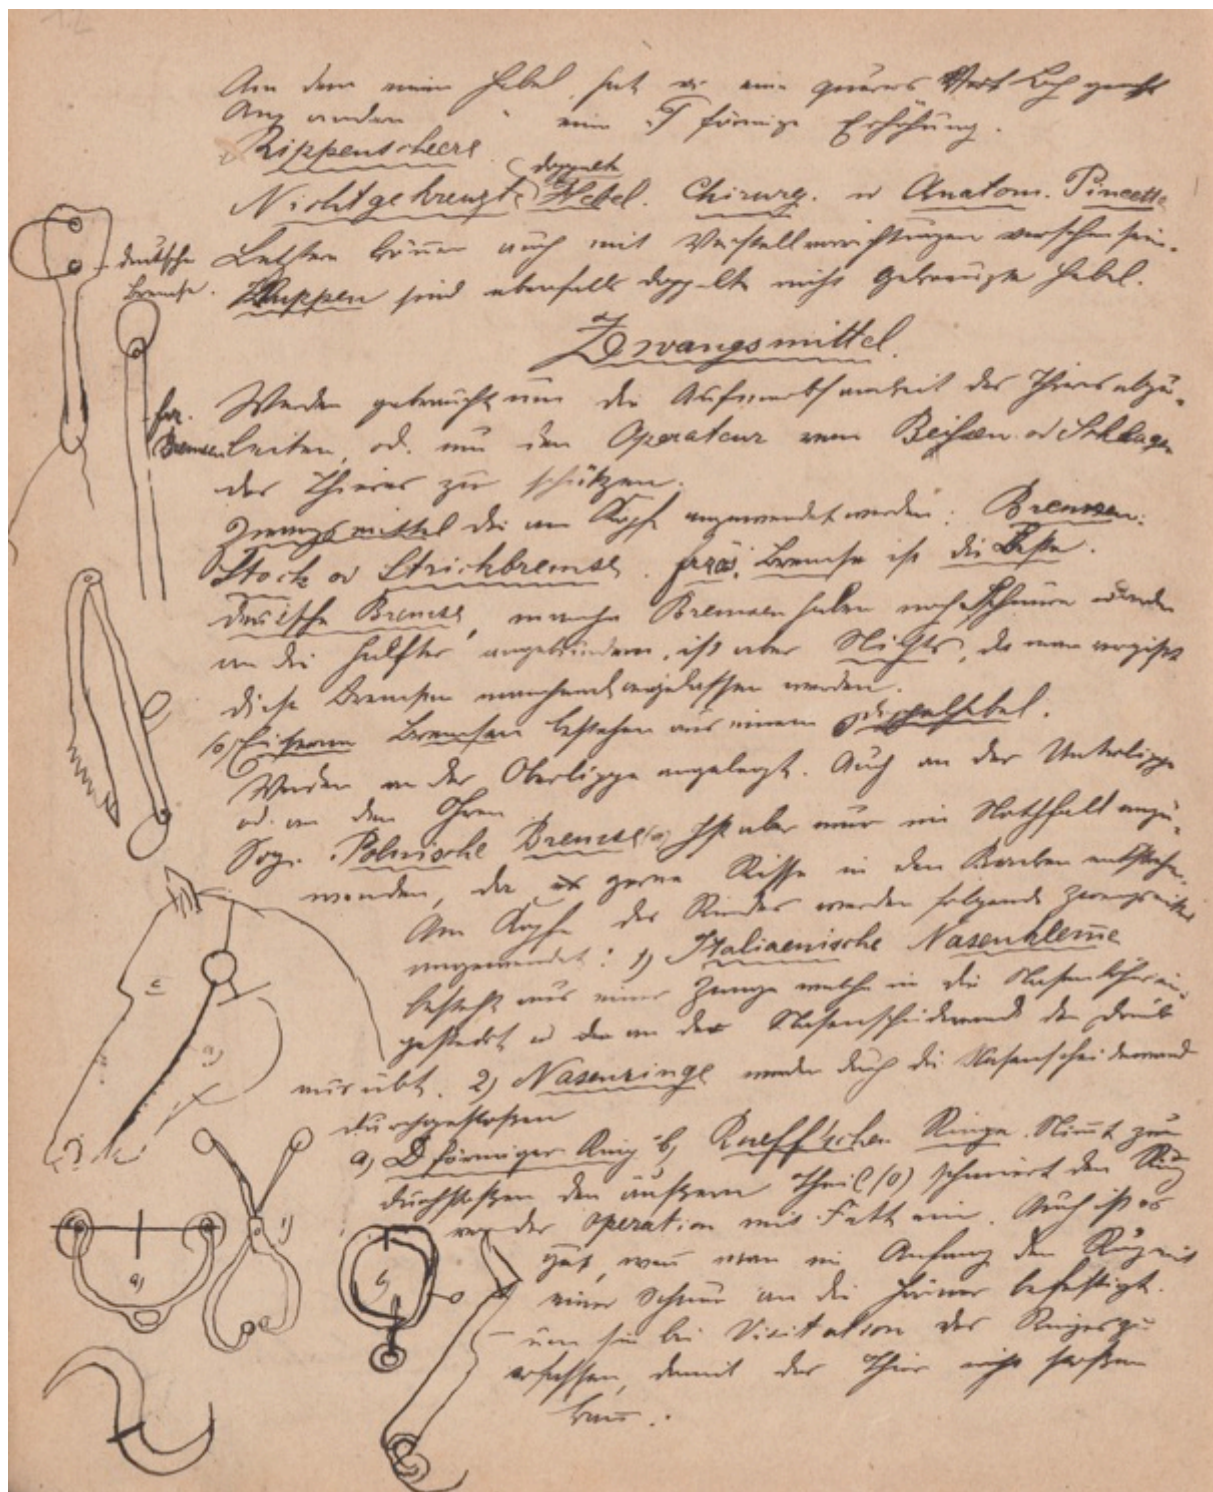 An dem einen Hebel hat es eine queres Loch
Am anderen " eine T förmige Erhöhung.
Rippenscheere
doppelte
Nichtgekreuzte Hebel. Chirurg. u Anatom. Pincette
deutsche Letztere können auch mit Verstellvorrichtungen versehen sein.
Bremse. Kluppen sind ebenfalls doppelte nicht gekreuzte Hebel.
Zwangsmittel.
frz. Werden gebraucht um die Aufmerksamkeit des Thieres abzu-
Bremse leiten, od. um den Operateur vom Beißen od Schlagen
des Thieres zu schützen.
Zwangsmittel die am Kopf angewendet werden: Bremsen:
Stock od Strickbremse. franz. Bremse ist die Beste.
deutsche Bremse, manche Bremsen haben noch Schnüre u werden
an die Halfter angebunden, ist aber Nichts, da man vergißt
diese Bremsen angelassen werden.
Eiserne Bremsen bestehen aus einem Doppelhebel.
Werden an der Oberlippe angelegt. Auch an der Unterlippe
od. an den Ohren.
Sog. Polnische Bremse Ist aber nur im Nothfall anzu-
wenden, da gerne Risse in den entstehen.
Am Kopfe des Rindes werden folgende Zwangsmittel
angewendet: 1) Italiaenische Nasenklem̅e
besteht aus einer Zange welche in die Nasenlöcher ein-
gesteckt u den an der Nasenscheidewand den Druck
ausübt. 2) Nasenringe werden durch die Nasenscheidewand
durchgestoßen
a) D förmiger Ring b) Rueff'schen Ringe. Nim̅t zum
durchstoßen den äußern Theil (o) schmiert den Ring
vor der Operation mit Fett ein. Auch ist es
gut, wen̅ man im Anfang den Ring mit
einer Schnur an die Hörner befestigt.
um sie bei Visitation des Ringes zu
erfassen, damit das Thier nicht
kan̅.
c
a)
a)
1)
b)